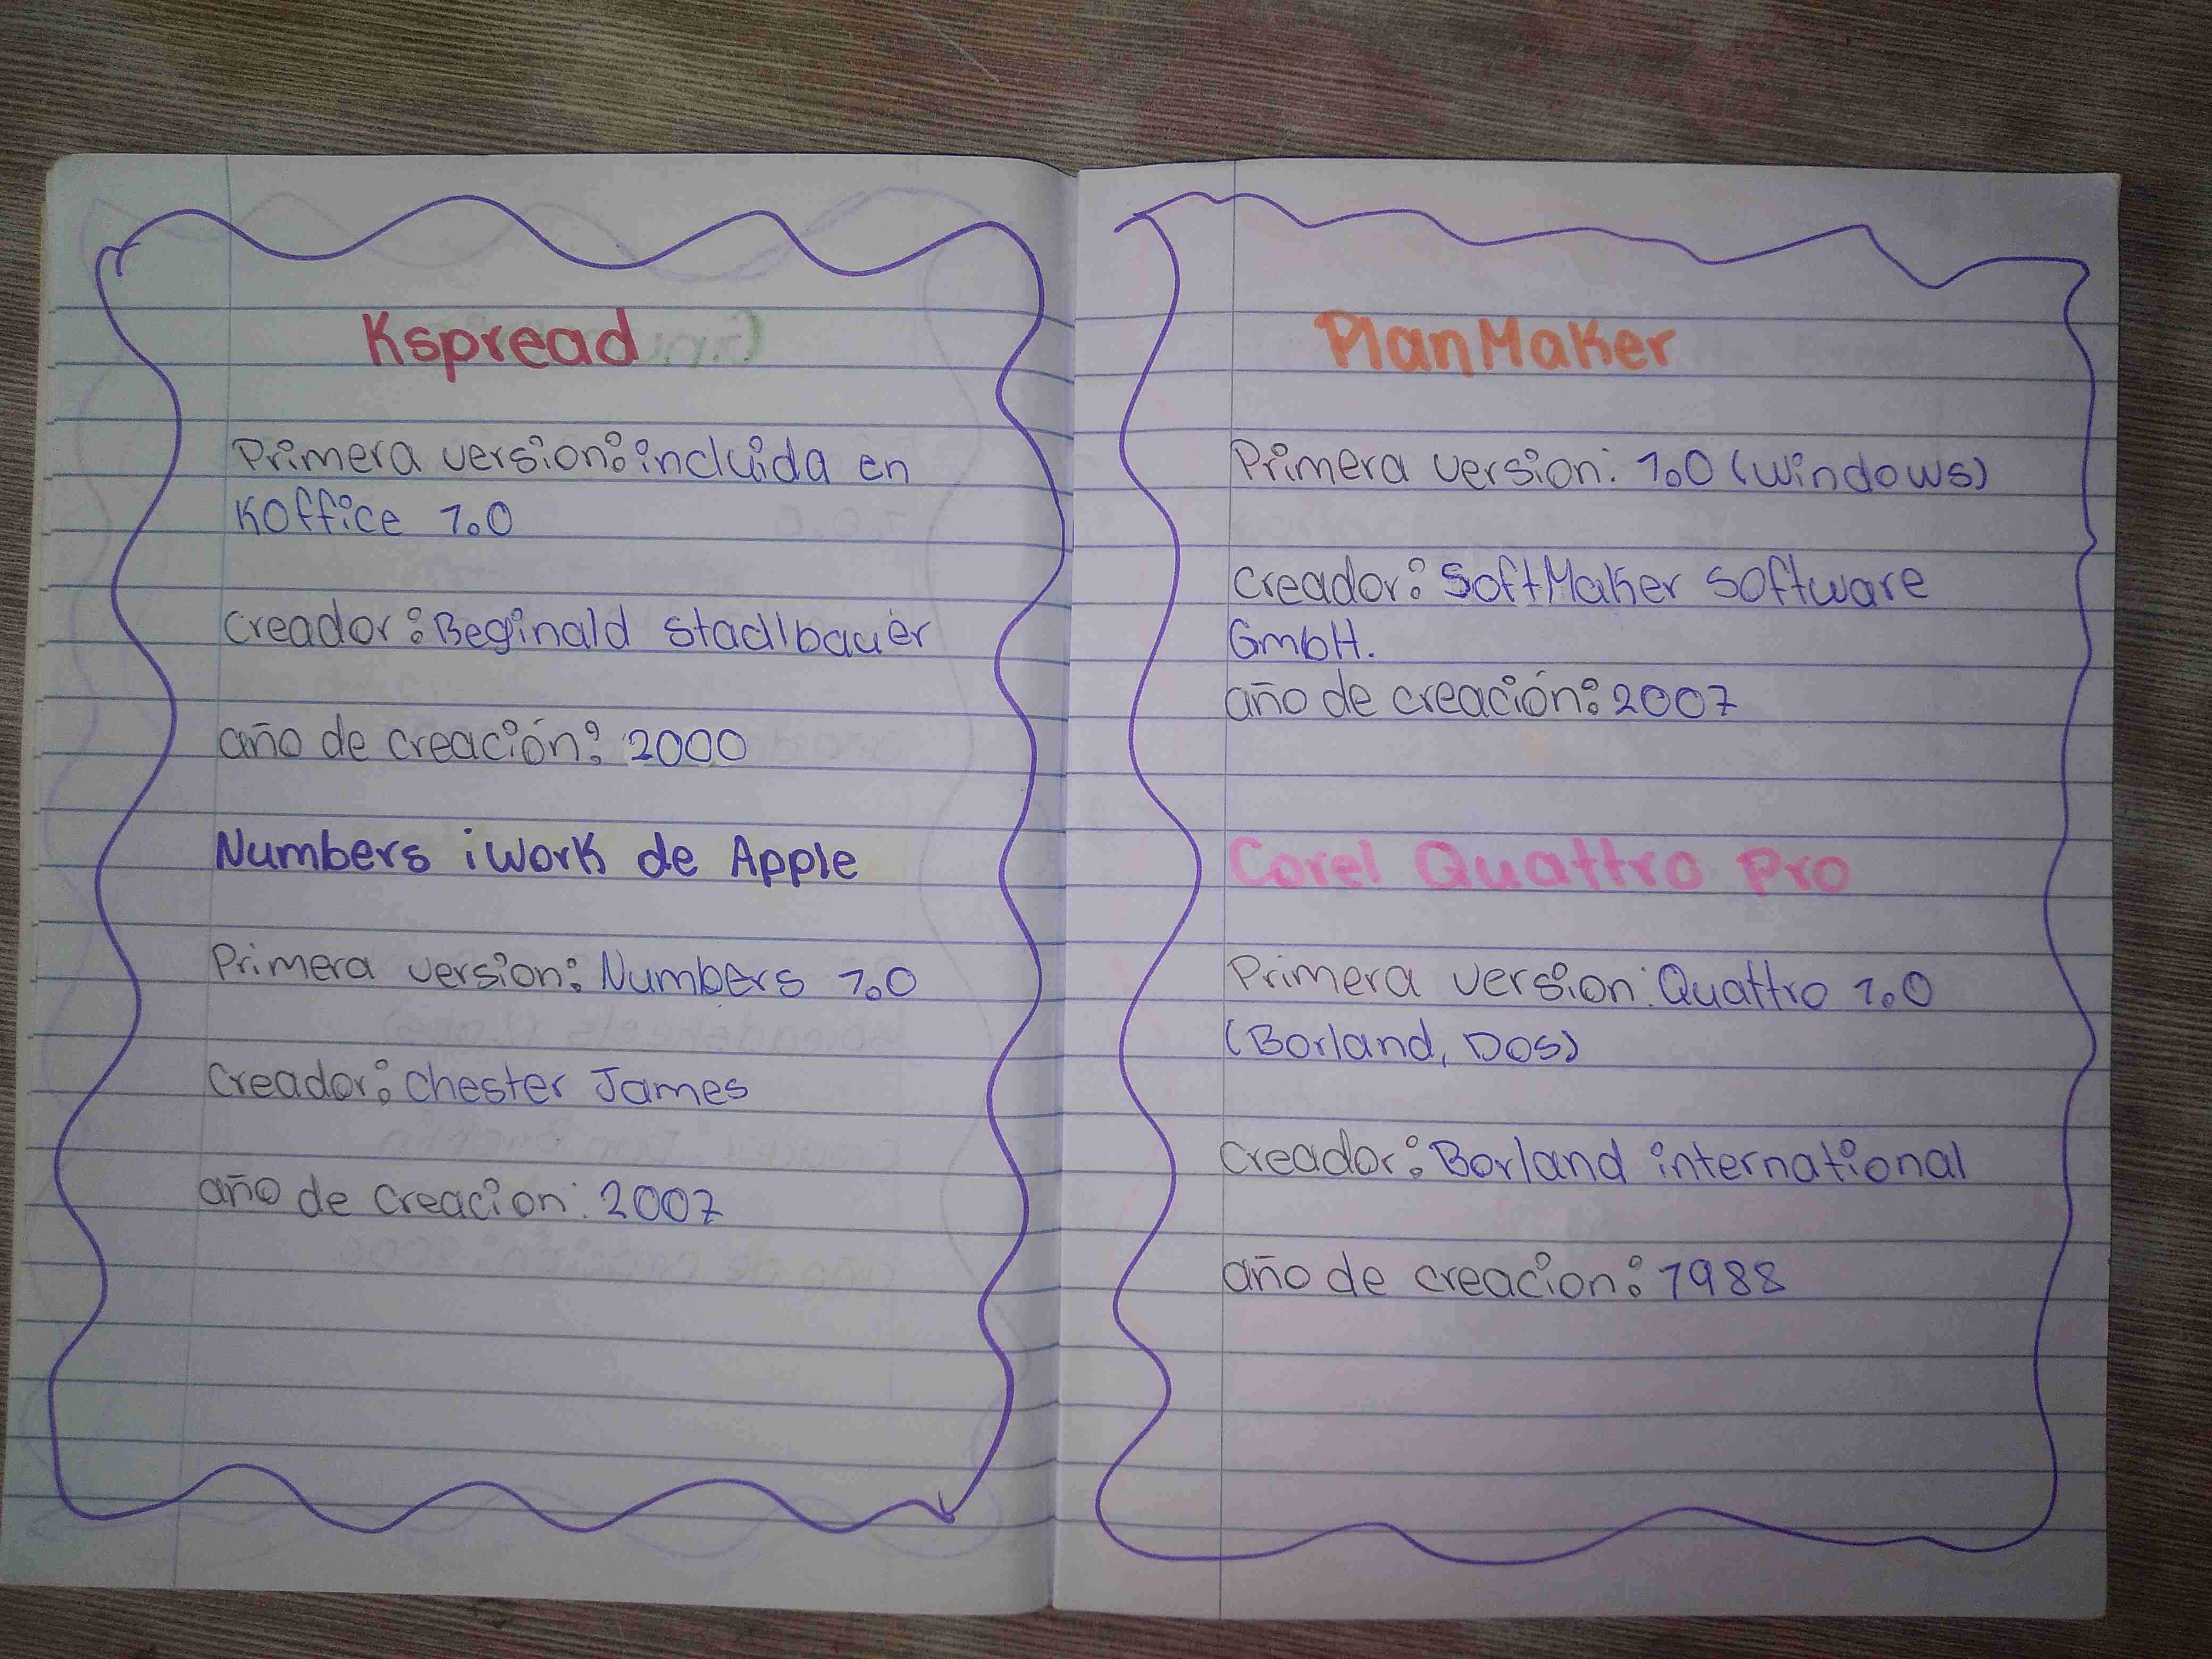 Kspread
Primera version: incluida en
Koffice 1.0
Creador: Beginald stadlbauer
año de creación: 2000
Numbers iWork de Apple
Primera version: Numbers 1.0
Creador: Chester James
año de creacion: 2007
PlanMaker
Primera version: 1.0 (Windows)
Creador: SoftMaker software
GmbH.
año de creación: 2007
Corel Quattro Pro
Primera version: Quattro 1.0
(Borland, DOS)
Creador: Borland international
año de creacion: 1988